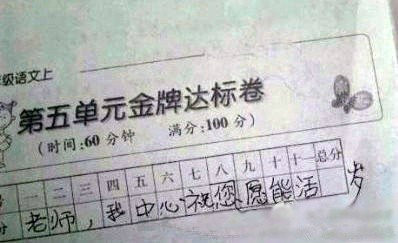 级语文上
第五单元金牌达标卷
(时间:60分钟 满分:100分)
一 二 三 四 五 六 七 八 九 十 十一 总分
分 老师，我中心祝您愿能活 岁